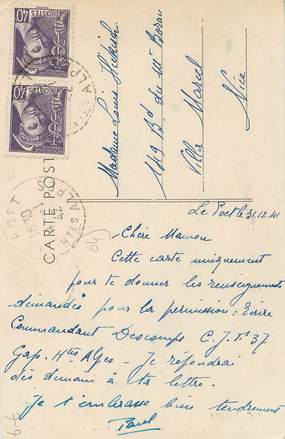 CARTE POSTALE
Madame Louis
119 Bd du Mt Boron
Villa Marcel
Nice
Le Poët le 31.12.41
Chère Maman
Cette carte uniquement
pour te donner les renseignements
demandés pour la permission : Ecrire
Commandant Descamps C.J.F. 37
Gap. Htes Alpes - Je répondrai
dès demain à ta lettre.
Je t'embrasse bien tendrement
POSTES
40
POSTES
40